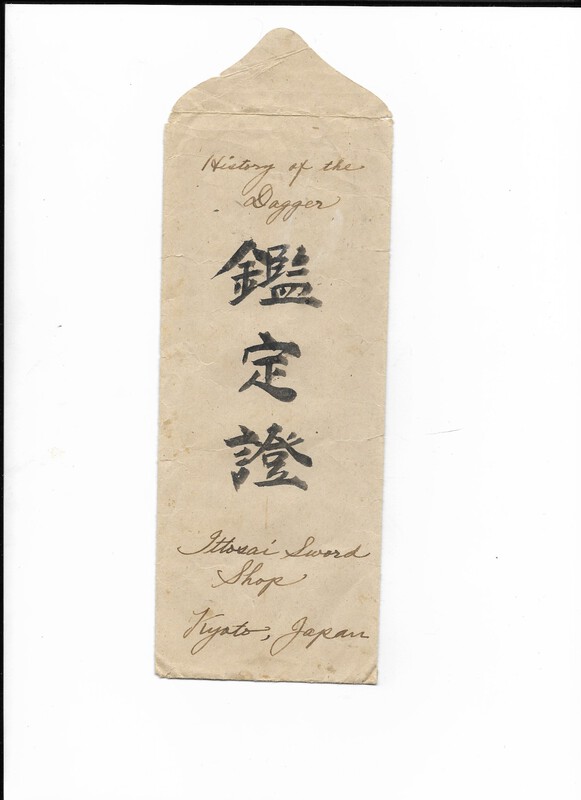 History of the
Dagger
鑑定證
Ittosai Sword
Shop
Kyoto, Japan